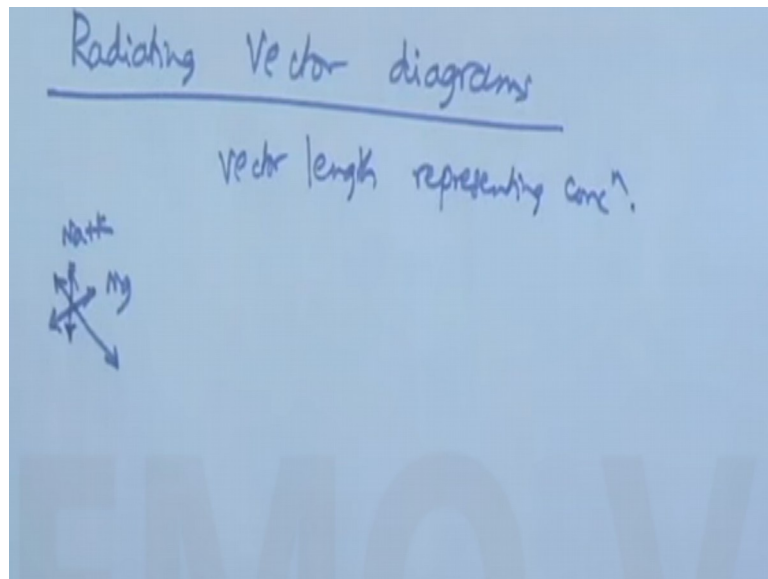 Radiating Vector diagrams
vector length representing concⁿ.
Na+K
Mg